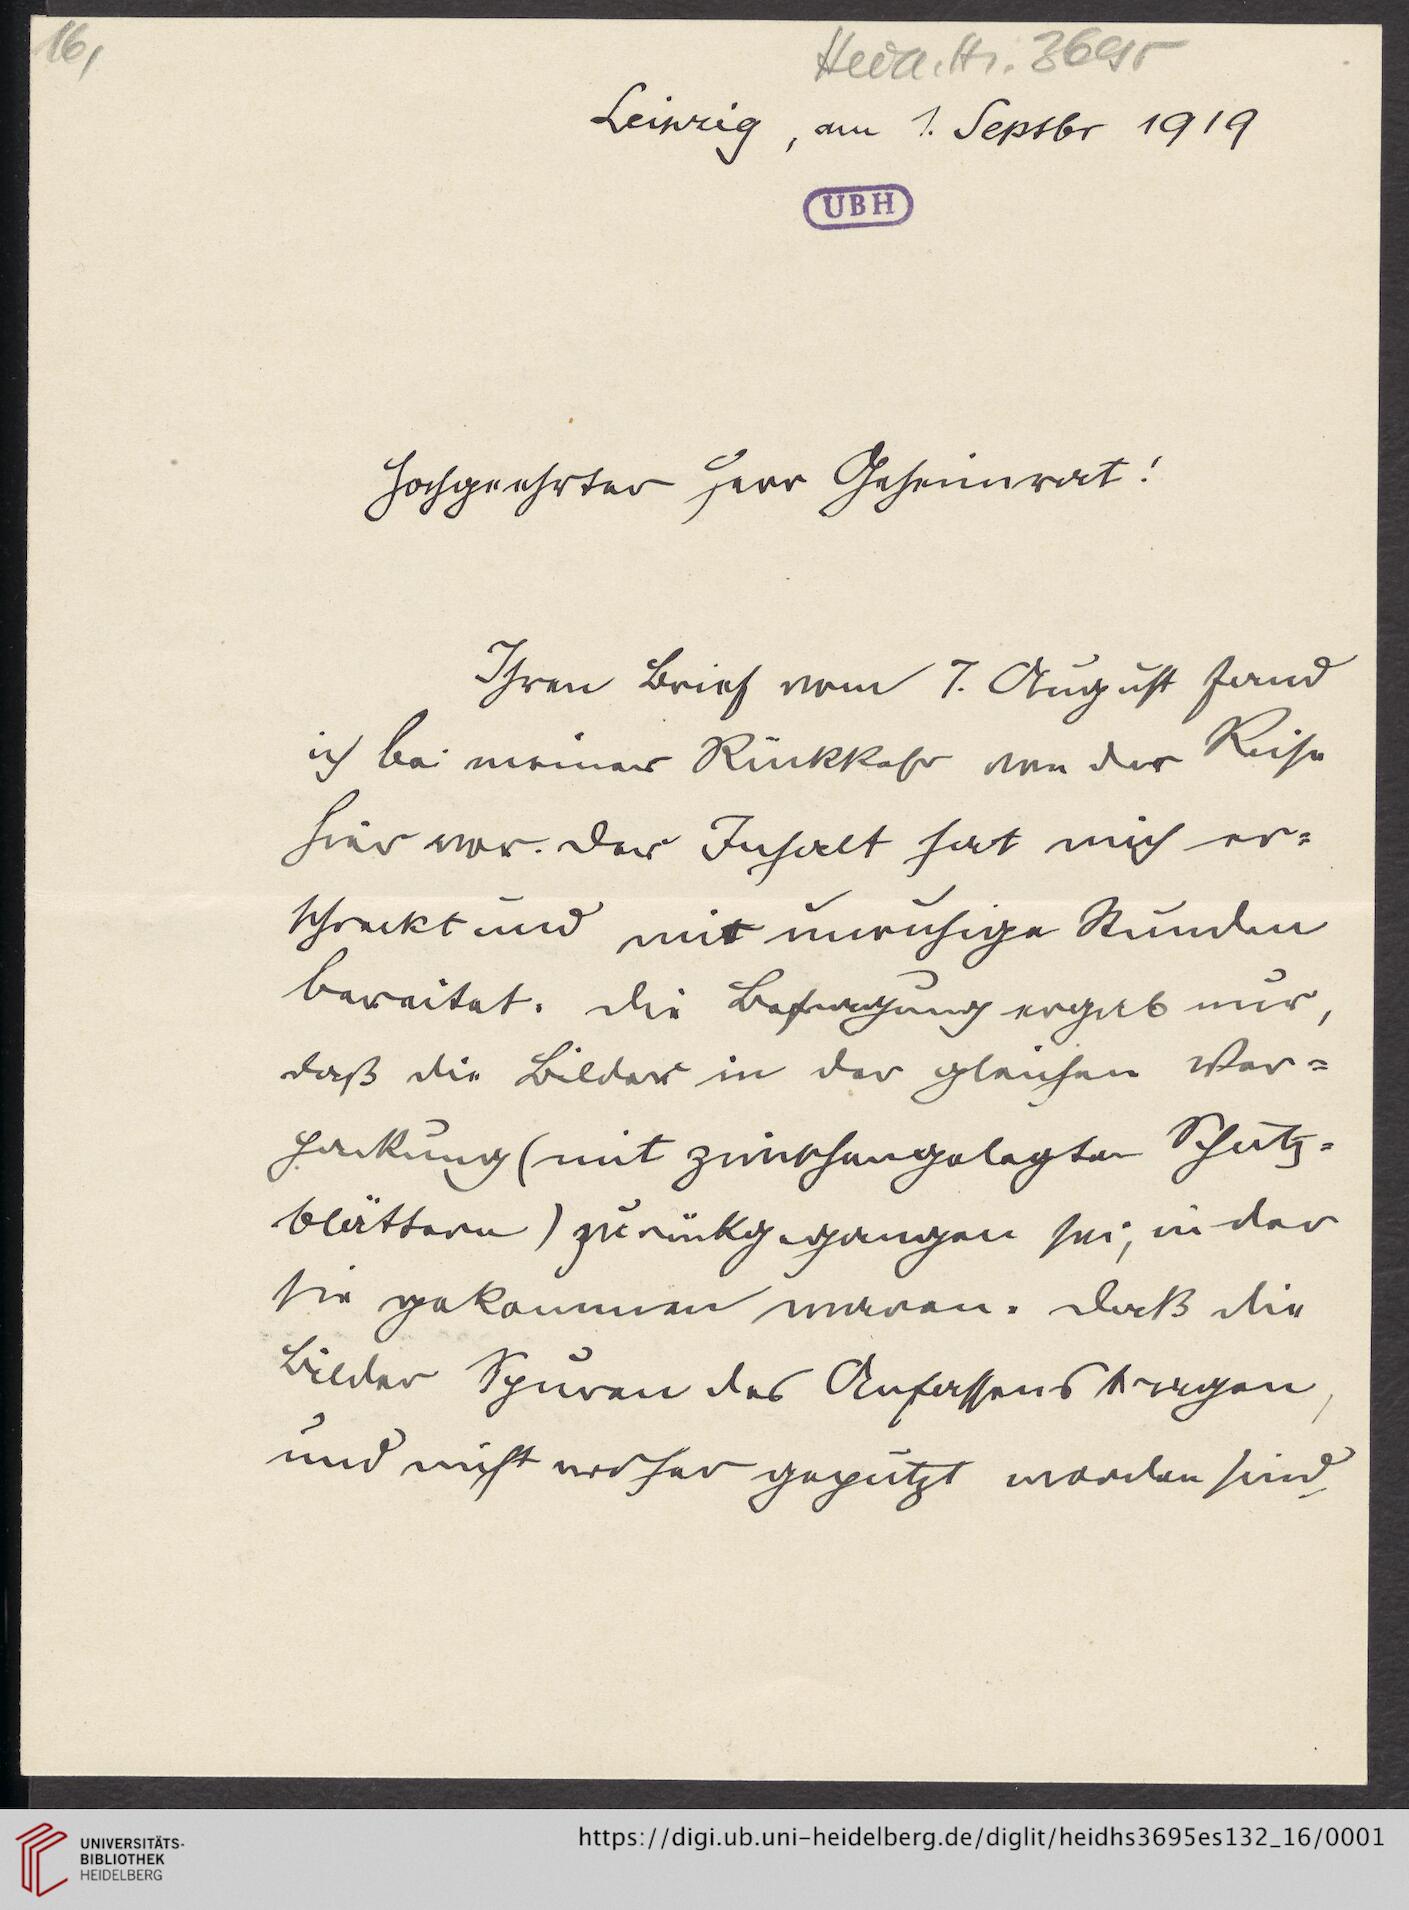 16,
Heid. Hs. 3695
Leipzig, am 1. Septbr 1919
UBH
Hochgeehrter Herr Geheimrat!
Ihren Brief vom 7. August fand
ich bei meiner Rückkehr von der Reise
hier vor. Der Inhalt hat mich er=
schreckt und mir unruhige Stunden
bereitet. Die Befragung ergab nur,
daß die Bilder in der gleichen Ver=
packung (mit zwischengelegten Schutz=
blättern) zurückgegangen sei, in der
sie gekommen waren. Daß die
Bilder Spuren des Anfassens tragen,
und nicht vorher geputzt worden sind,
UNIVERSITÄTS-
BIBLIOTHEK
HEIDELBERG
https://digi.ub.uni-heidelberg.de/diglit/heidhs3695es132_16/0001